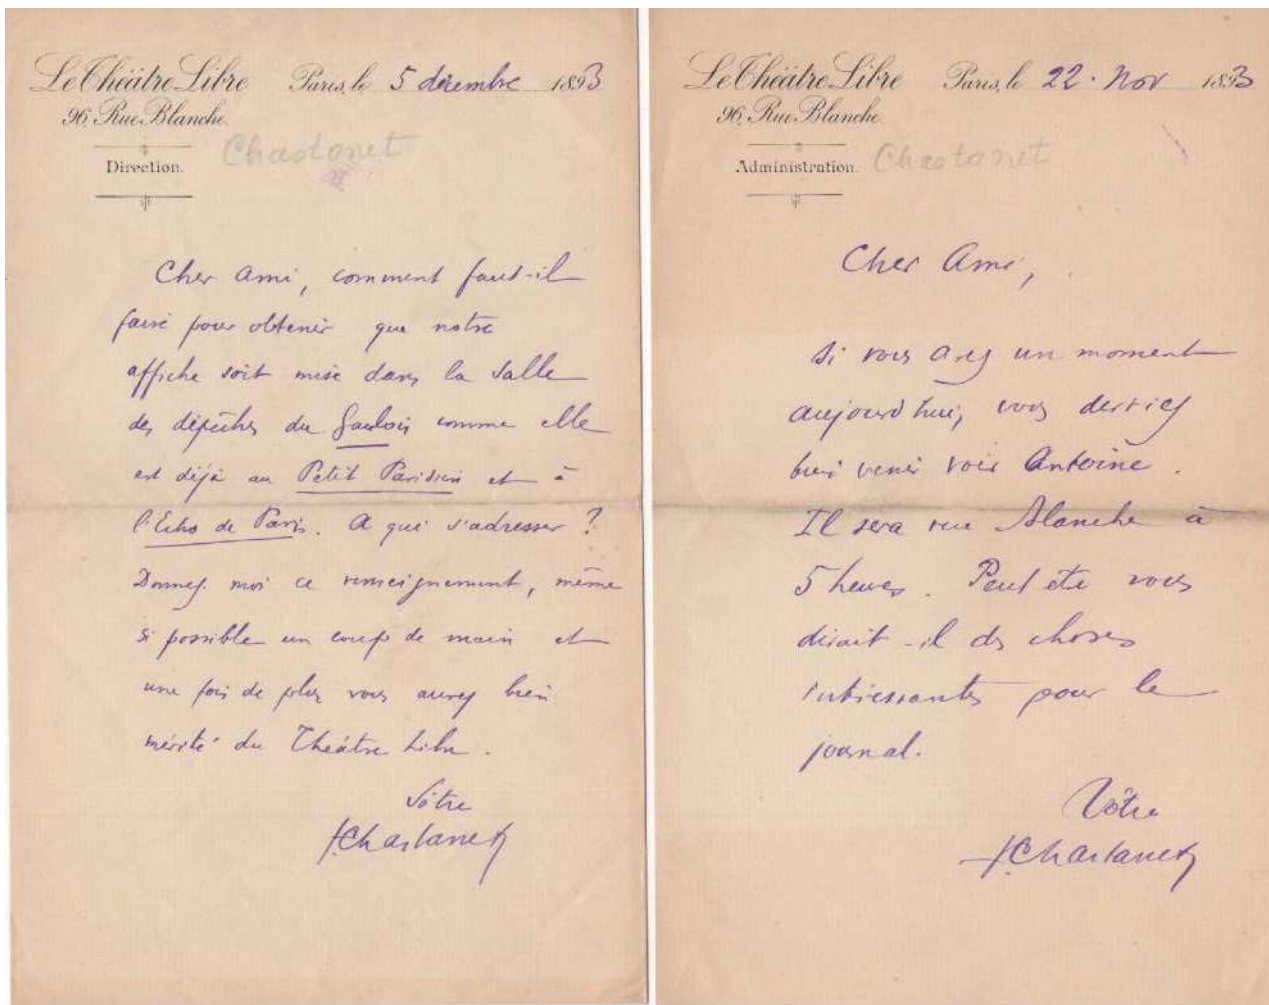 Le Théâtre Libre
96, Rue Blanche.
Paris, le 5 décembre 1893
Direction.
Chastanet
Cher Ami, comment faut-il
faire pour obtenir que notre
affiche soit mise dans la salle
des dépêches du Gaulois comme elle
est déjà au Petit Parisien et à
l'Echo de Paris. A qui s'adresser ?
Donnez moi ce renseignement, même
si possible un coup de main et
une fois de plus vous aurez bien
mérité du Théâtre Libre.
Vôtre
J.Chastanet
Le Théâtre Libre
96, Rue Blanche.
Paris, le 22 Nov 1893
Administration.
Chastanet
Cher Ami,
Si vous avez un moment
aujourd'hui, vous devriez
bien venir voir Antoine.
Il sera rue Blanche à
5 heures. Peut être vous
dirait-il des choses
intéressantes pour le
journal.
Vôtre
J.Chastanet